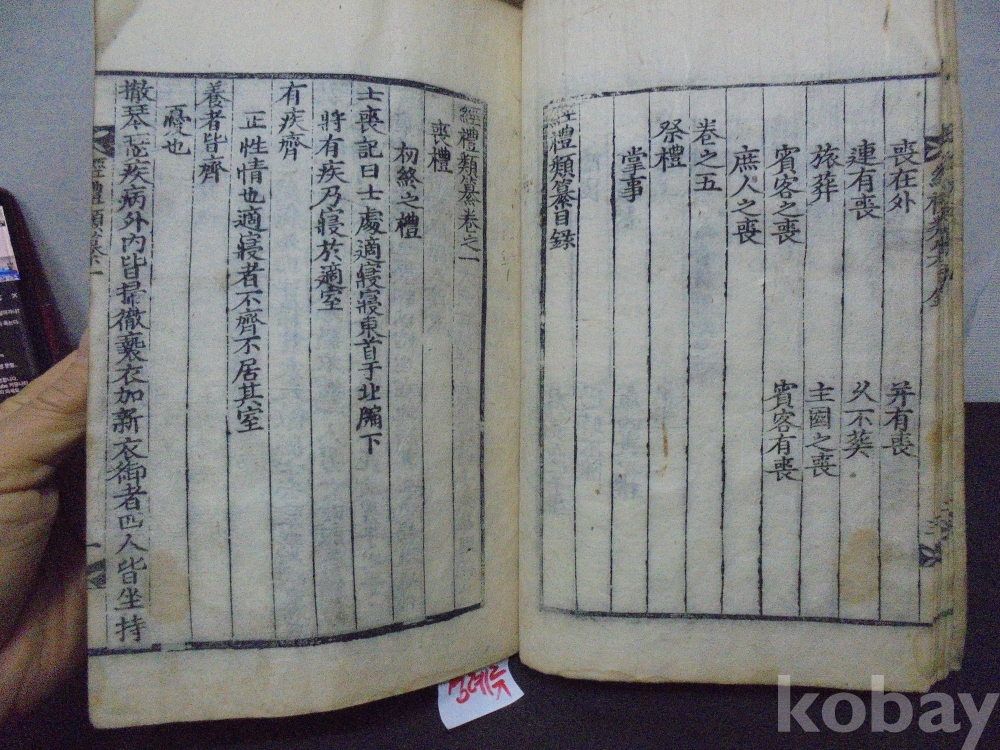 喪在外
并有喪
連有喪
久不葬
旅葬
主國之喪
賓客之喪
賓客有喪
庶人之喪
卷之五
祭禮
掌事
經禮類纂目錄
經禮類纂卷之一
喪禮
初終之禮
士喪記曰士處適寢寢東首于北牖下
將有疾乃寢於適室
有疾齊
正性情也適寢者不齊不居其室
養者皆齊
憂也
撤琴瑟疾病外內皆掃徹褻衣加新衣御者四人皆坐持
經禮類纂一
kobay